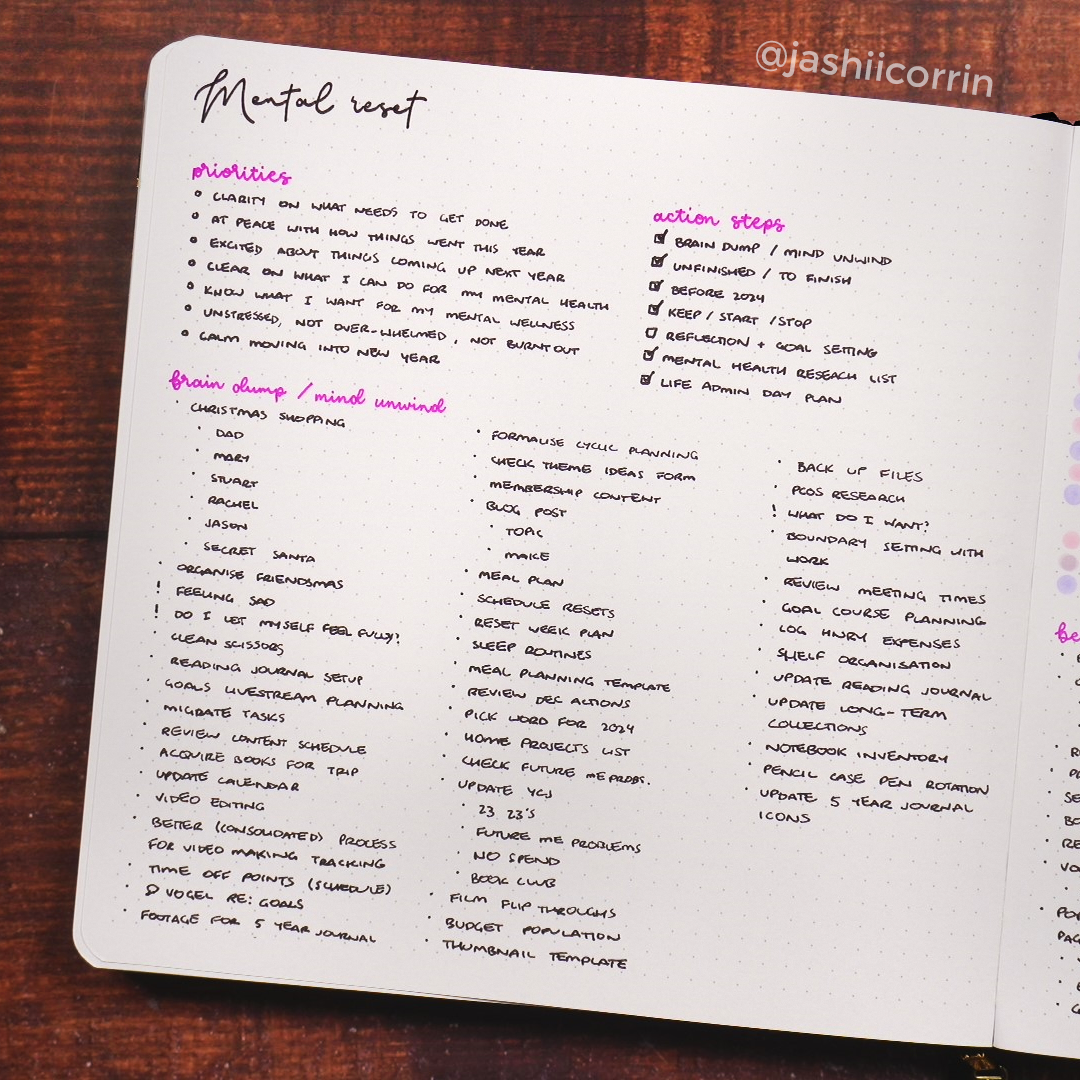 @jashiicorrin
Mental reset
priorities
• CLARITY ON WHAT NEEDS TO GET DONE
• AT PEACE WITH HOW THINGS WENT THIS YEAR
• EXCITED ABOUT THINGS COMING UP NEXT YEAR
• CLEAR ON WHAT I CAN DO FOR MY MENTAL HEALTH
• KNOW WHAT I WANT FOR MY MENTAL WELLNESS
• UNSTRESSED, NOT OVER-WHELMED, NOT BURNT OUT
• CALM MOVING INTO NEW YEAR
action steps
☑ BRAIN DUMP / MIND UNWIND
☑ UNFINISHED / TO FINISH
☑ BEFORE 2024
☑ KEEP / START / STOP
☐ REFLECTION + GOAL SETTING
☑ MENTAL HEALTH RESEACH LIST
☑ LIFE ADMIN DAY PLAN
brain dump / mind unwind
• CHRISTMAS SHOPPING
• DAD
• MARY
• STUART
• RACHEL
• JASON
• SECRET SANTA
• ORGANISE FRIENDSMAS
! FEELING SAD
! DO I LET MYSELF FEEL FULLY?
• CLEAN SCISSORS
• READING JOURNAL SETUP
• GOALS LIVESTREAM PLANNING
• MIGRATE TASKS
• REVIEW CONTENT SCHEDULE
• ACQUIRE BOOKS FOR TRIP
• UPDATE CALENDAR
• VIDEO EDITING
• BETTER (CONSOLIDATED) PROCESS
FOR VIDEO MAKING TRACKING
• TIME OFF POINTS (SCHEDULE)
• VOGEL RE: GOALS
• FOOTAGE FOR 5 YEAR JOURNAL
• FORMALISE CYCLIC PLANNING
• CHECK THEME IDEAS FORM
• MEMBERSHIP CONTENT
• BLOG POST
• TOPIC
• MAKE
• MEAL PLAN
• SCHEDULE RESETS
• RESET WEEK PLAN
• SLEEP ROUTINES
• MEAL PLANNING TEMPLATE
• REVIEW DEC ACTIONS
• PICK WORD FOR 2024
• HOME PROJECTS LIST
• CHECK FUTURE ME PROBS.
• UPDATE YCJ
• 23 23'S
• FUTURE ME PROBLEMS
• NO SPEND
• BOOK CLUB
• FILM FLIP THROUGHS
• BUDGET POPULATION
• THUMBNAIL TEMPLATE
• BACK UP FILES
• PCOS RESEARCH
! WHAT DO I WANT?
• BOUNDARY SETTING WITH
WORK
• REVIEW MEETING TIMES
• GOAL COURSE PLANNING
• LOG HNRY EXPENSES
• SHELF ORGANISATION
• UPDATE READING JOURNAL
• UPDATE LONG-TERM
COLLECTIONS
• NOTEBOOK INVENTORY
• PENCIL CASE PEN ROTATION
• UPDATE 5 YEAR JOURNAL
ICONS